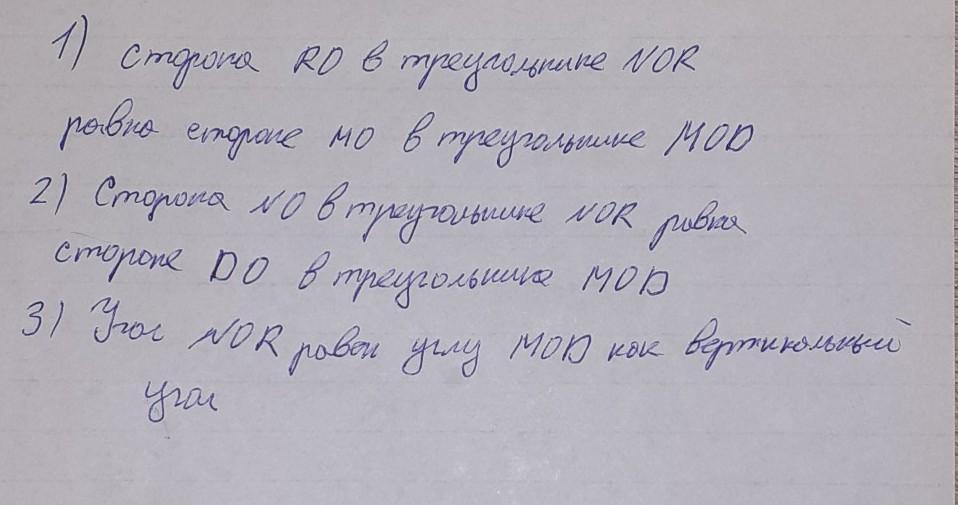 1) Сторона RO в треугольнике NOR
равна стороне MO в треугольнике MOD
2) Сторона NO в треугольнике NOR равна
стороне DO в треугольнике MOD
3) Угол NOR равен углу MOD как вертикальный
угол